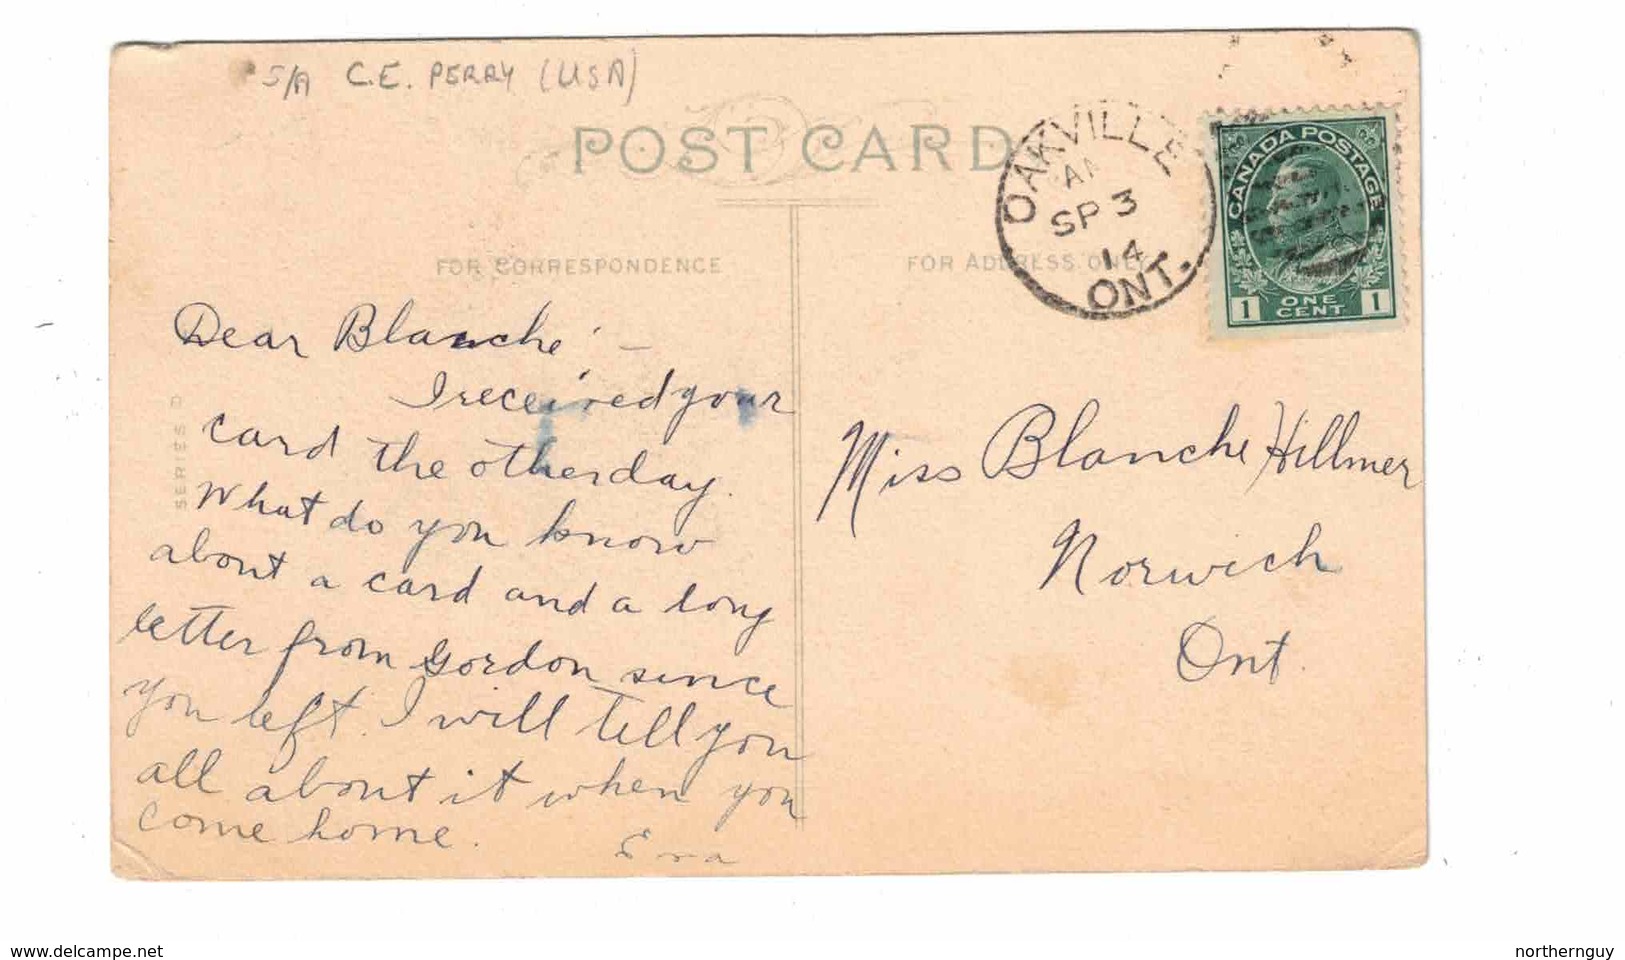 S/A C.E. PERRY (USA)
POST CARD
OAKVILLE
AM
SP 3
14
ONT.
CANADA POSTAGE
1 ONE CENT 1
FOR CORRESPONDENCE
FOR ADDRESS ONLY
SERIES D
Dear Blanche: –
I received your
card the other day.
What do you know
about a card and a long
letter from Gordon since
you left. I will tell you
all about it when you
come home.
Eva
Miss Blanche Hillmer
Norwich
Ont.
www.delcampe.net
northernguy